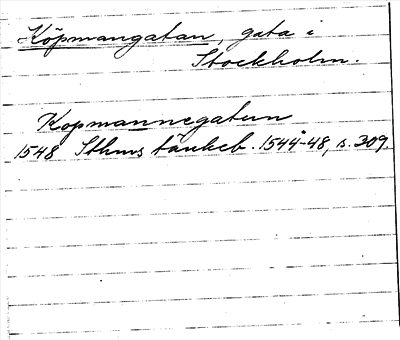 Köpmangatan, gata i
Stockholm.
Kopmannegatun
1548 Sthms tänkeb. 1544-48, s. 309.